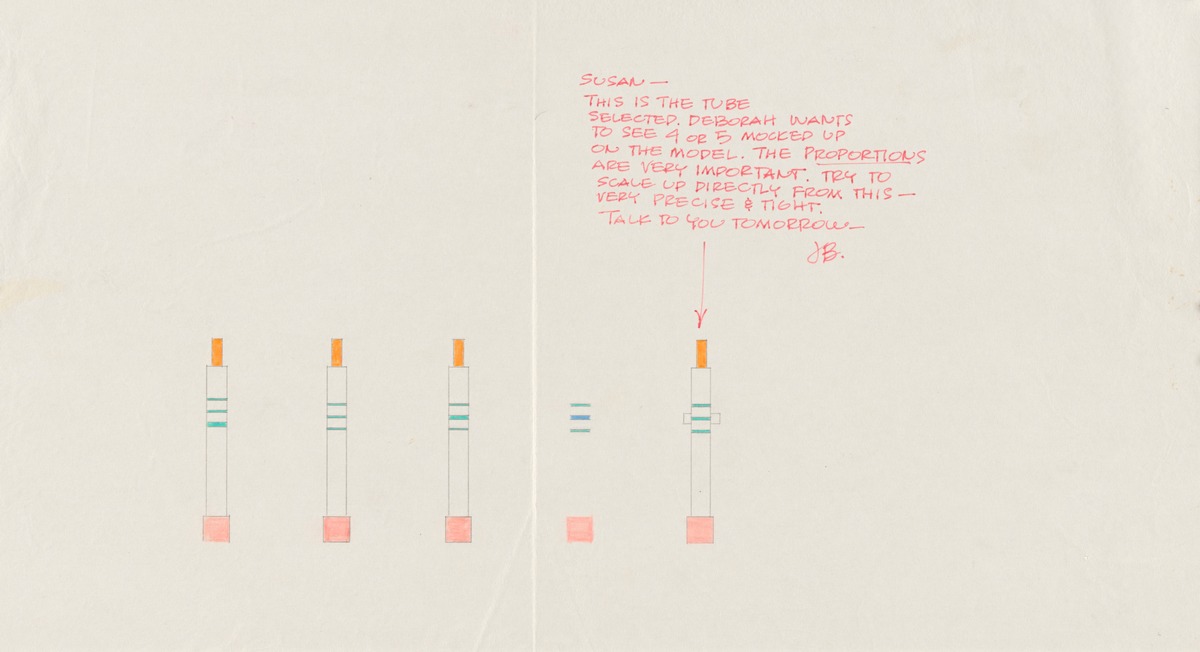 SUSAN —
THIS IS THE TUBE
SELECTED. DEBORAH WANTS
TO SEE 4 OR 5 MOCKED UP
ON THE MODEL. THE PROPORTIONS
ARE VERY IMPORTANT. TRY TO
SCALE UP DIRECTLY FROM THIS —
VERY PRECISE & TIGHT.
TALK TO YOU TOMORROW —
JB.